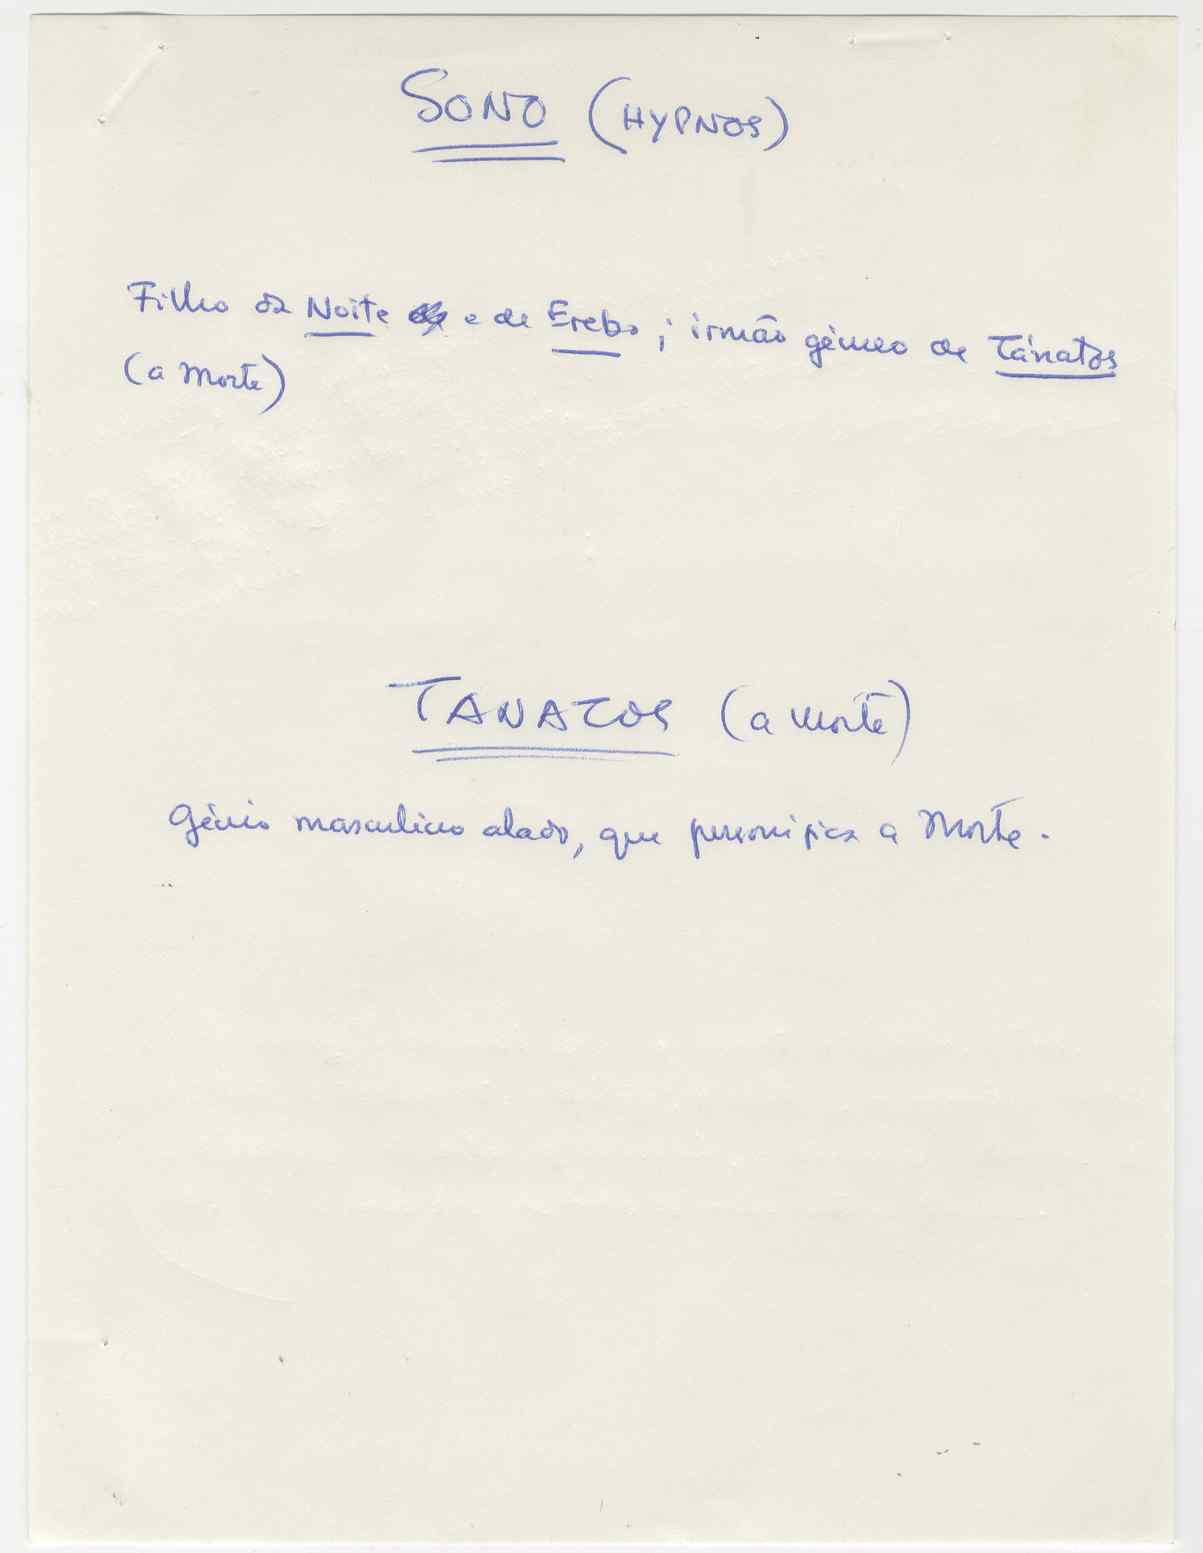 SONO (HYPNOS)
Filho da Noite e de Erebo; irmão gémeo de Tánatos
(a Morte)
TANATOS (a morte)
Génio masculino alado, que personifica a Morte.